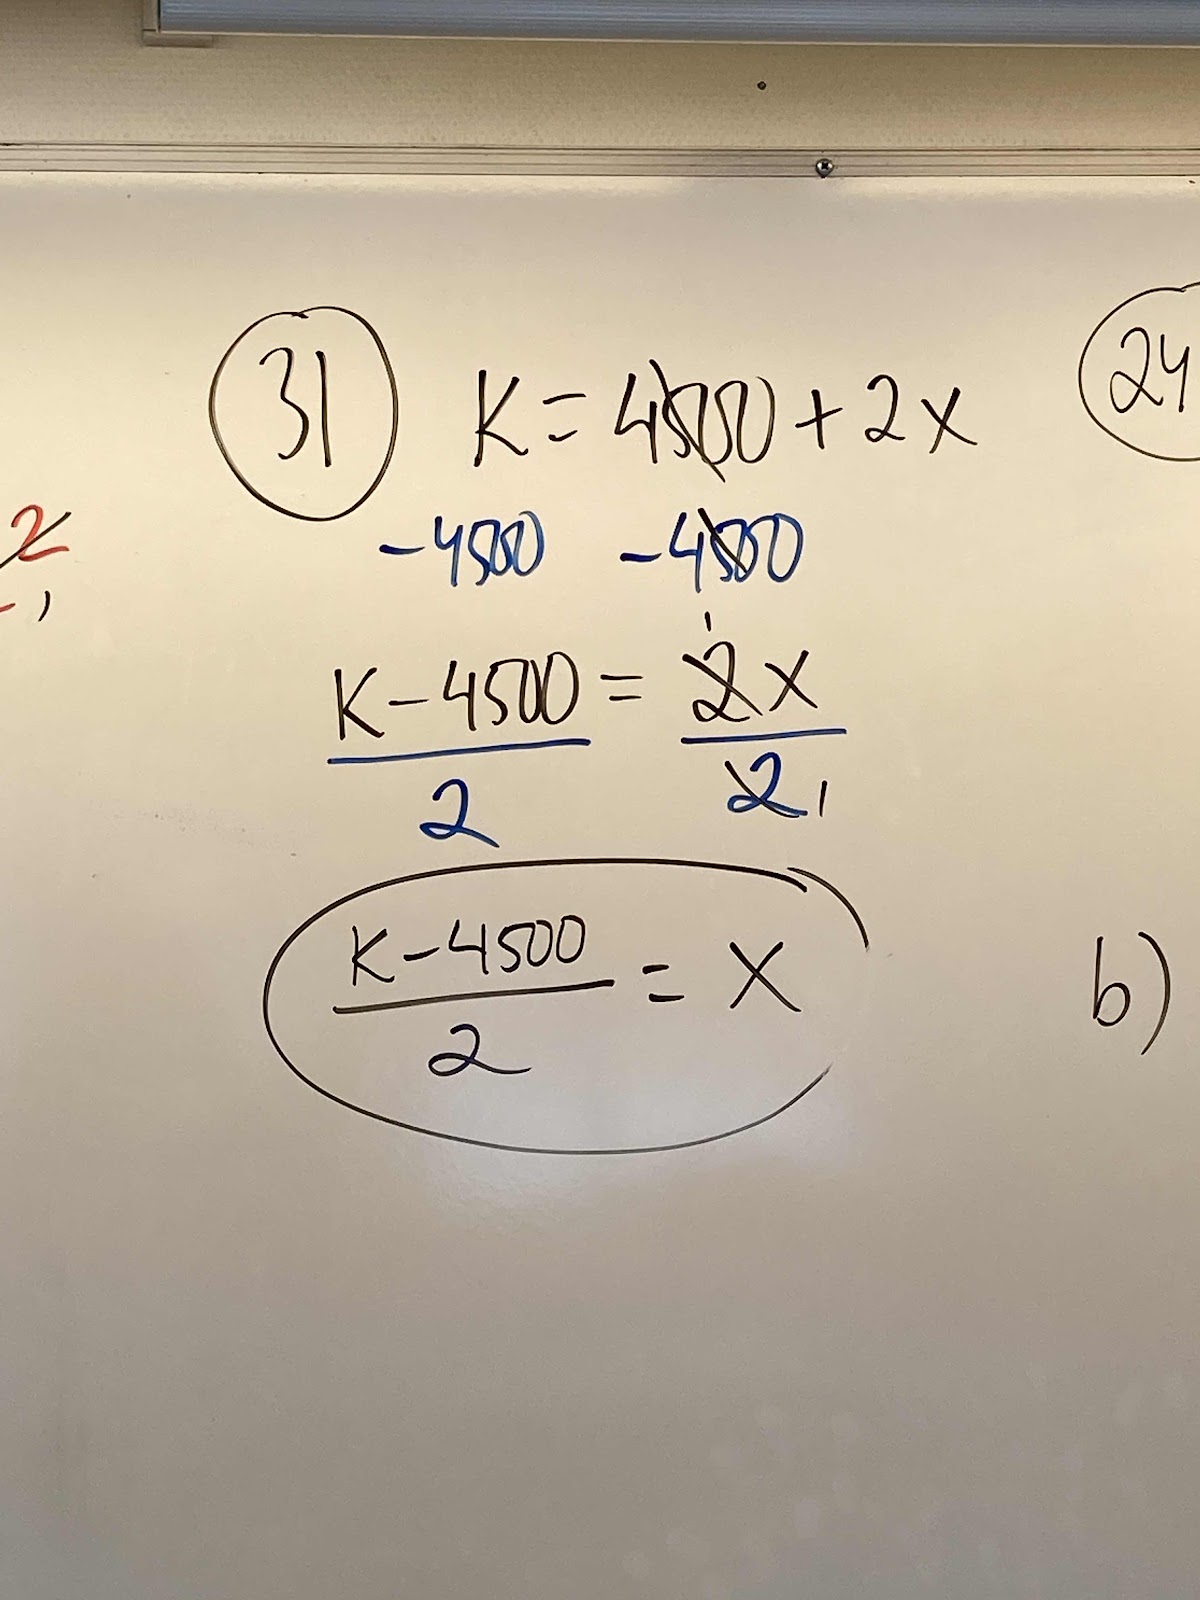 31 K = 4500 + 2x
-4500 -4500
1
K - 4500 = 2x
2 2 1
K - 4500 = x
2
24
b)
2
- 1